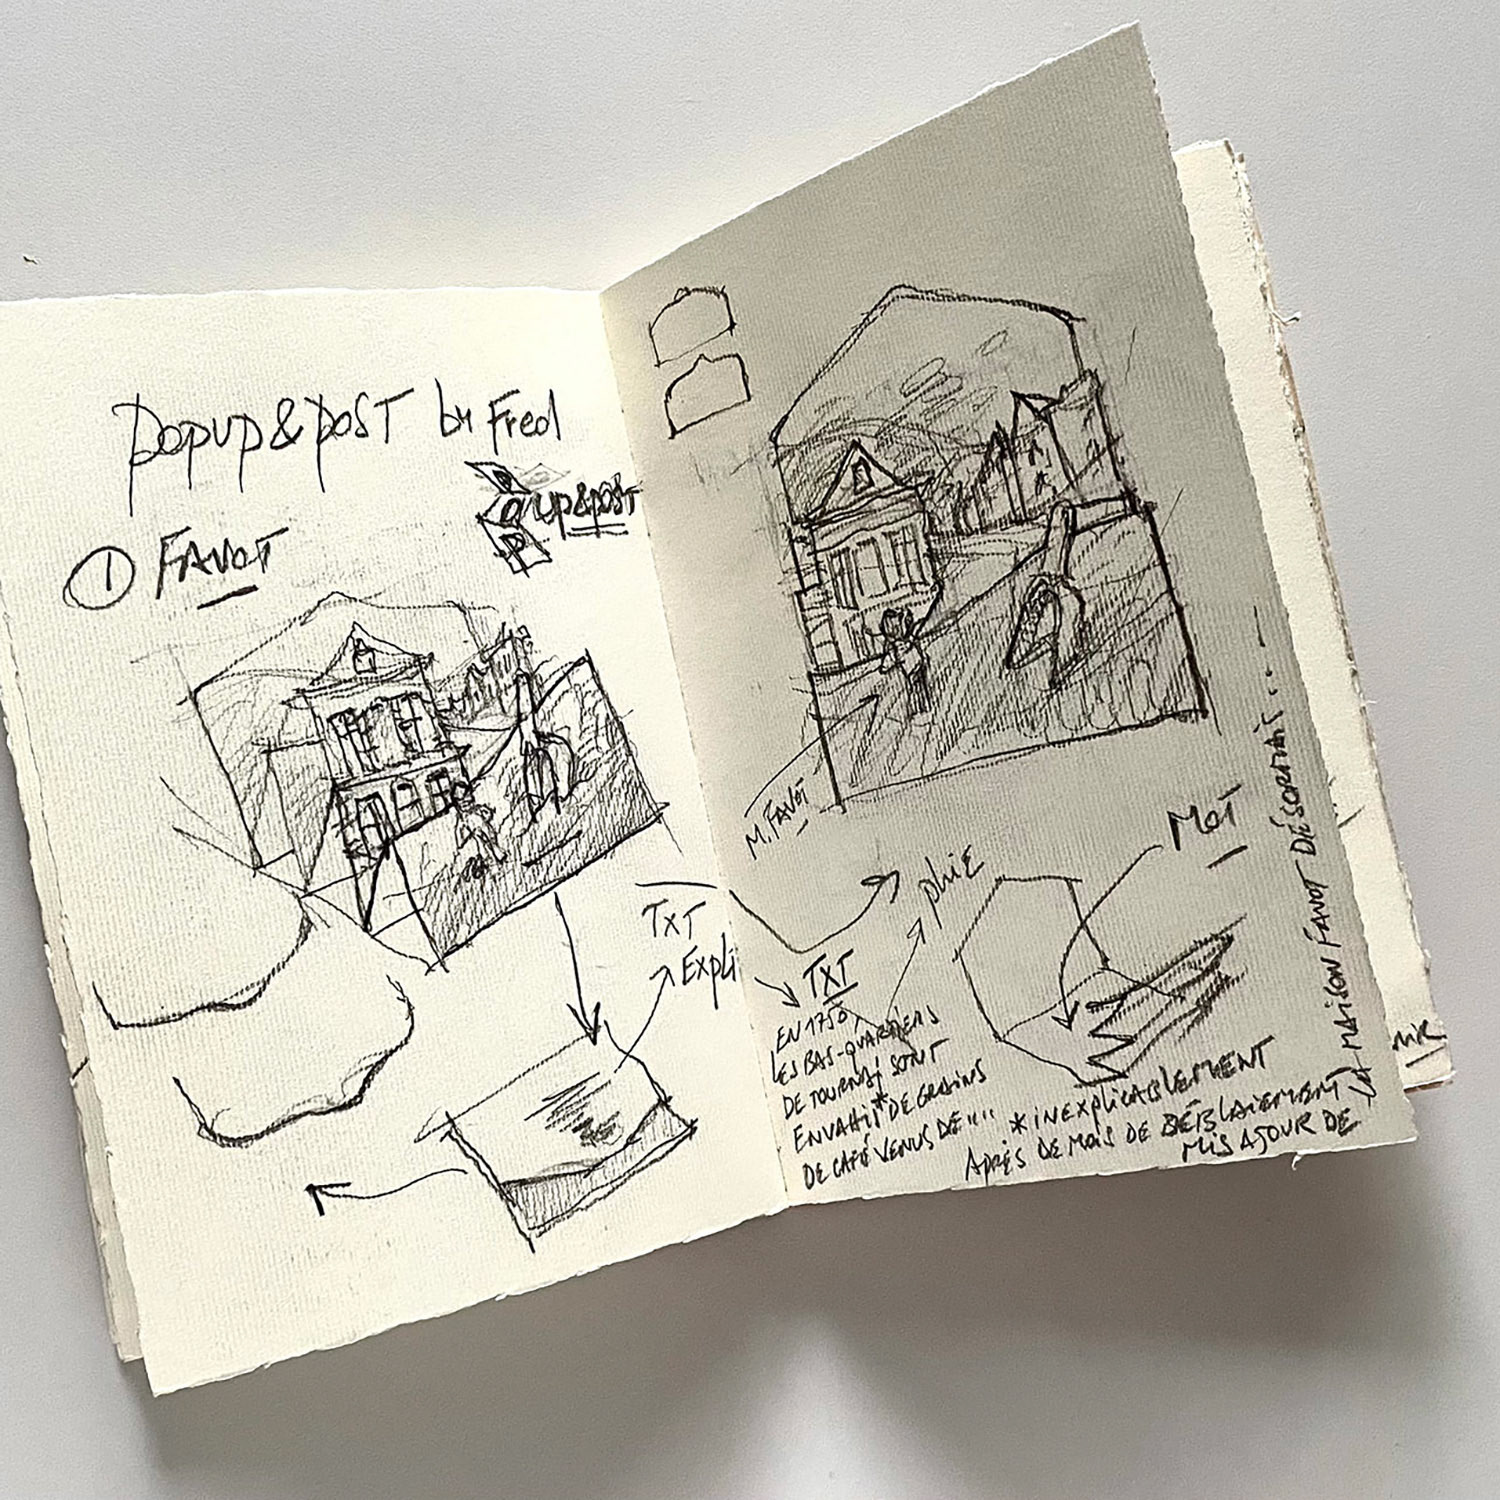 Popup&post by Fred
up&post
① FAVOT
TXT
Expli
M. FAVOT
MOT
phie
TXT
EN 1750,
LES BAS-QUARTIERS
DE TOURNAI SONT
ENVAHIS* DE GRAINS
DE CAFÉ VENUS DE "..."
*INEXPLICABLEMENT
APRÈS DE MOIS DE DÉBLAIEMENT
MIS A JOUR DE
LA MAISON FAVOT DÉSORMAIS...